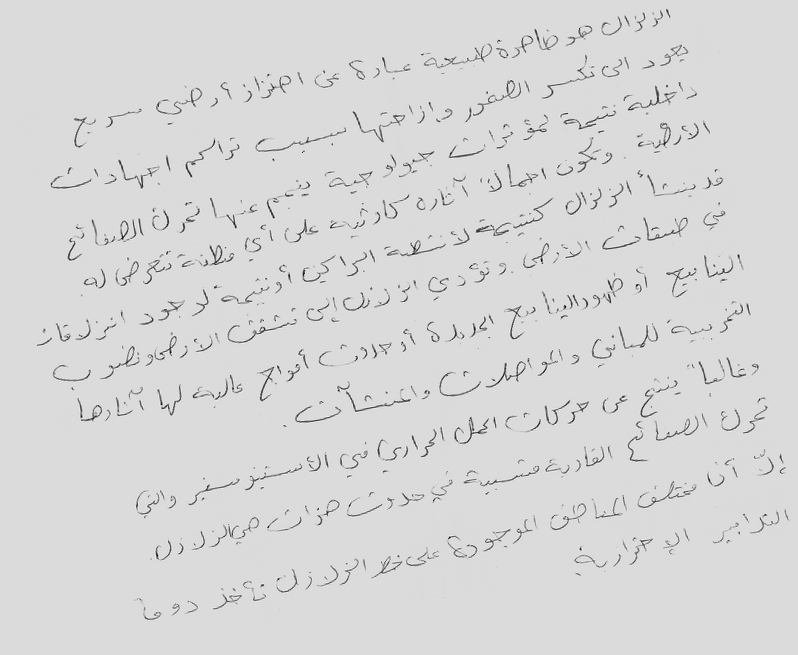 الزلزال هو ظاهرة طبيعية عبارة عن اهتزاز أرضي سريع
يعود الى تكسر الصخور وإزاحتها بسبب تراكم اجهادات
داخلية نتيجة لمؤثرات جيولوجية ينجم عنها تحرك الصفائح
الأرضية. وتكون اجمالاً آثاره كارثية على أي منطقة تتعرض له.
قد ينشأ الزلزال كنتيجة لأنشطة البراكين أو نتيجة لوجود انزلاقات
في طبقات الأرض. وتؤدي الزلازل إلى تشقق الأرض ونضوب
الينابيع أو ظهور الينابيع الجديدة أو حدوث أمواج عالية لها آثارها
التخريبية للمباني والمواصلات والمنشآت.
وغالباً ينتج عن حركات الحمل الحراري في الأستينوسفير والتي
تحرك الصفائح القارية متسببة في حدوث هزات هي الزلازل.
إلاّ أن مختلف المناطق الموجودة على خط الزلازل تأخذ دوماً
التدابير الإحترازية